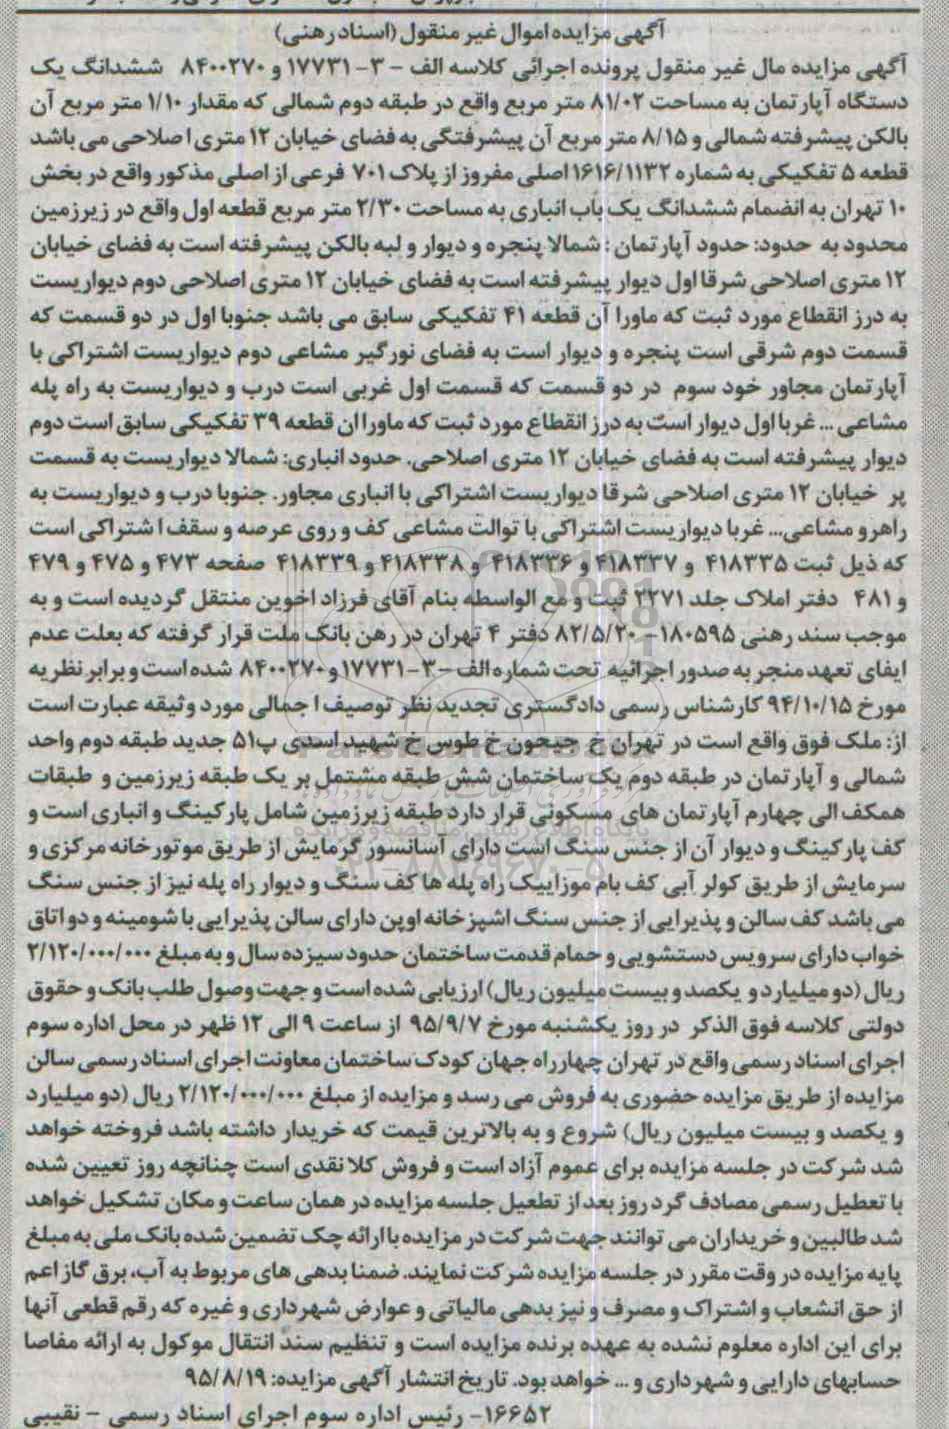 آگهی مزایده اموال غیر منقول (اسناد رهنی)
آگهی مزایده مال غیر منقول پرونده اجرائی کلاسه الف - ۳- ۱۷۷۳۱ و ۸۴۰۰۲۷۰ ششدانگ یک
دستگاه آپارتمان به مساحت ۸۱/۰۲ متر مربع واقع در طبقه دوم شمالی که مقدار ۱/۱۰ متر مربع آن
بالکن پیشرفته شمالی و ۸/۱۵ متر مربع آن پیشرفتگی به فضای خیابان ۱۲ متری اصلاحی می باشد
قطعه ۵ تفکیکی به شماره ۱۶۱۶/۱۱۳۲ اصلی مفروز از پلاک ۷۰۱ فرعی از اصلی مذکور واقع در بخش
۱۰ تهران به انضمام ششدانگ یک باب انباری به مساحت ۲/۳۰ متر مربع قطعه اول واقع در زیرزمین
محدود به حدود: حدود آپارتمان : شمالا پنجره و دیوار و لبه بالکن پیشرفته است به فضای خیابان
۱۲ متری اصلاحی شرقا اول دیوار پیشرفته است به فضای خیابان ۱۲ متری اصلاحی دوم دیواریست
به درز انقطاع مورد ثبت که ماورا آن قطعه ۴۱ تفکیکی سابق می باشد جنوبا اول در دو قسمت که
قسمت دوم شرقی است پنجره و دیوار است به فضای نورگیر مشاعی دوم دیواریست اشتراکی با
آپارتمان مجاور خود سوم در دو قسمت که قسمت اول غربی است درب و دیواریست به راه پله
مشاعی ... غربا اول دیوار است به درز انقطاع مورد ثبت که ماورا ان قطعه ۳۹ تفکیکی سابق است دوم
دیوار پیشرفته است به فضای خیابان ۱۲ متری اصلاحی. حدود انباری: شمالا دیواریست به قسمت
پر خیابان ۱۲ متری اصلاحی شرقا دیواریست اشتراکی با انباری مجاور. جنوبا درب و دیواریست به
راهرو مشاعی... غربا دیواریست اشتراکی با توالت مشاعی کف و روی عرصه و سقف اشتراکی است
که ذیل ثبت ۴۱۸۳۳۵ و ۴۱۸۳۳۷ و ۴۱۸۳۳۶ و ۴۱۸۳۳۸ و ۴۱۸۳۳۹ صفحه ۴۷۳ و ۴۷۵ و ۴۷۹
و ۴۸۱ دفتر املاک جلد ۲۲۷۱ ثبت و مع الواسطه بنام آقای فرزاد اخوین منتقل گردیده است و به
موجب سند رهنی ۱۸۰۵۹۵- ۸۲/۵/۲۰ دفتر ۴ تهران در رهن بانک ملت قرار گرفته که بعلت عدم
ایفای تعهد منجر به صدور اجرائیه تحت شماره الف -۳- ۱۷۷۳۱ و ۸۴۰۰۲۷۰ شده است و برابر نظریه
مورخ ۹۴/۱۰/۱۵ کارشناس رسمی دادگستری تجدید نظر توصیف اجمالی مورد وثیقه عبارت است
از: ملک فوق واقع است در تهران خ جیحون خ طوس خ شهید اسدی پ۵۱ جدید طبقه دوم واحد
شمالی و آپارتمان در طبقه دوم یک ساختمان شش طبقه مشتمل بر یک طبقه زیرزمین و طبقات
همکف الی چهارم آپارتمان های مسکونی قرار دارد طبقه زیرزمین شامل پارکینگ و انباری است و
کف پارکینگ و دیوار آن از جنس سنگ است دارای آسانسور گرمایش از طریق موتورخانه مرکزی و
سرمایش از طریق کولر آبی کف بام موزاییک راه پله ها کف سنگ و دیوار راه پله نیز از جنس سنگ
می باشد کف سالن و پذیرایی از جنس سنگ اشپزخانه اوپن دارای سالن پذیرایی با شومینه و دو اتاق
خواب دارای سرویس دستشویی و حمام قدمت ساختمان حدود سیزده سال و به مبلغ ۲/۱۲۰/۰۰۰/۰۰۰
ریال (دو میلیارد و یکصد و بیست میلیون ریال) ارزیابی شده است و جهت وصول طلب بانک و حقوق
دولتی کلاسه فوق الذکر در روز یکشنبه مورخ ۹۵/۹/۷ از ساعت ۹ الی ۱۲ ظهر در محل اداره سوم
اجرای اسناد رسمی واقع در تهران چهارراه جهان کودک ساختمان معاونت اجرای اسناد رسمی سالن
مزایده از طریق مزایده حضوری به فروش می رسد و مزایده از مبلغ ۲/۱۲۰/۰۰۰/۰۰۰ ریال (دو میلیارد
و یکصد و بیست میلیون ریال) شروع و به بالاترین قیمت که خریدار داشته باشد فروخته خواهد
شد شرکت در جلسه مزایده برای عموم آزاد است و فروش کلا نقدی است چنانچه روز تعیین شده
با تعطیل رسمی مصادف گرد روز بعد از تطعیل جلسه مزایده در همان ساعت و مکان تشکیل خواهد
شد طالبین و خریداران می توانند جهت شرکت در مزایده با ارائه چک تضمین شده بانک ملی به مبلغ
پایه مزایده در وقت مقرر در جلسه مزایده شرکت نمایند. ضمنا بدهی های مربوط به آب، برق گاز اعم
از حق انشعاب و اشتراک و مصرف و نیز بدهی مالیاتی و عوارض شهرداری و غیره که رقم قطعی آنها
برای این اداره معلوم نشده به عهده برنده مزایده است و تنظیم سند انتقال موکول به ارائه مفاصا
حسابهای دارایی و شهرداری و ... خواهد بود. تاریخ انتشار آگهی مزایده: ۹۵/۸/۱۹
۱۶۶۵۲- رئیس اداره سوم اجرای اسناد رسمی - نقیبی